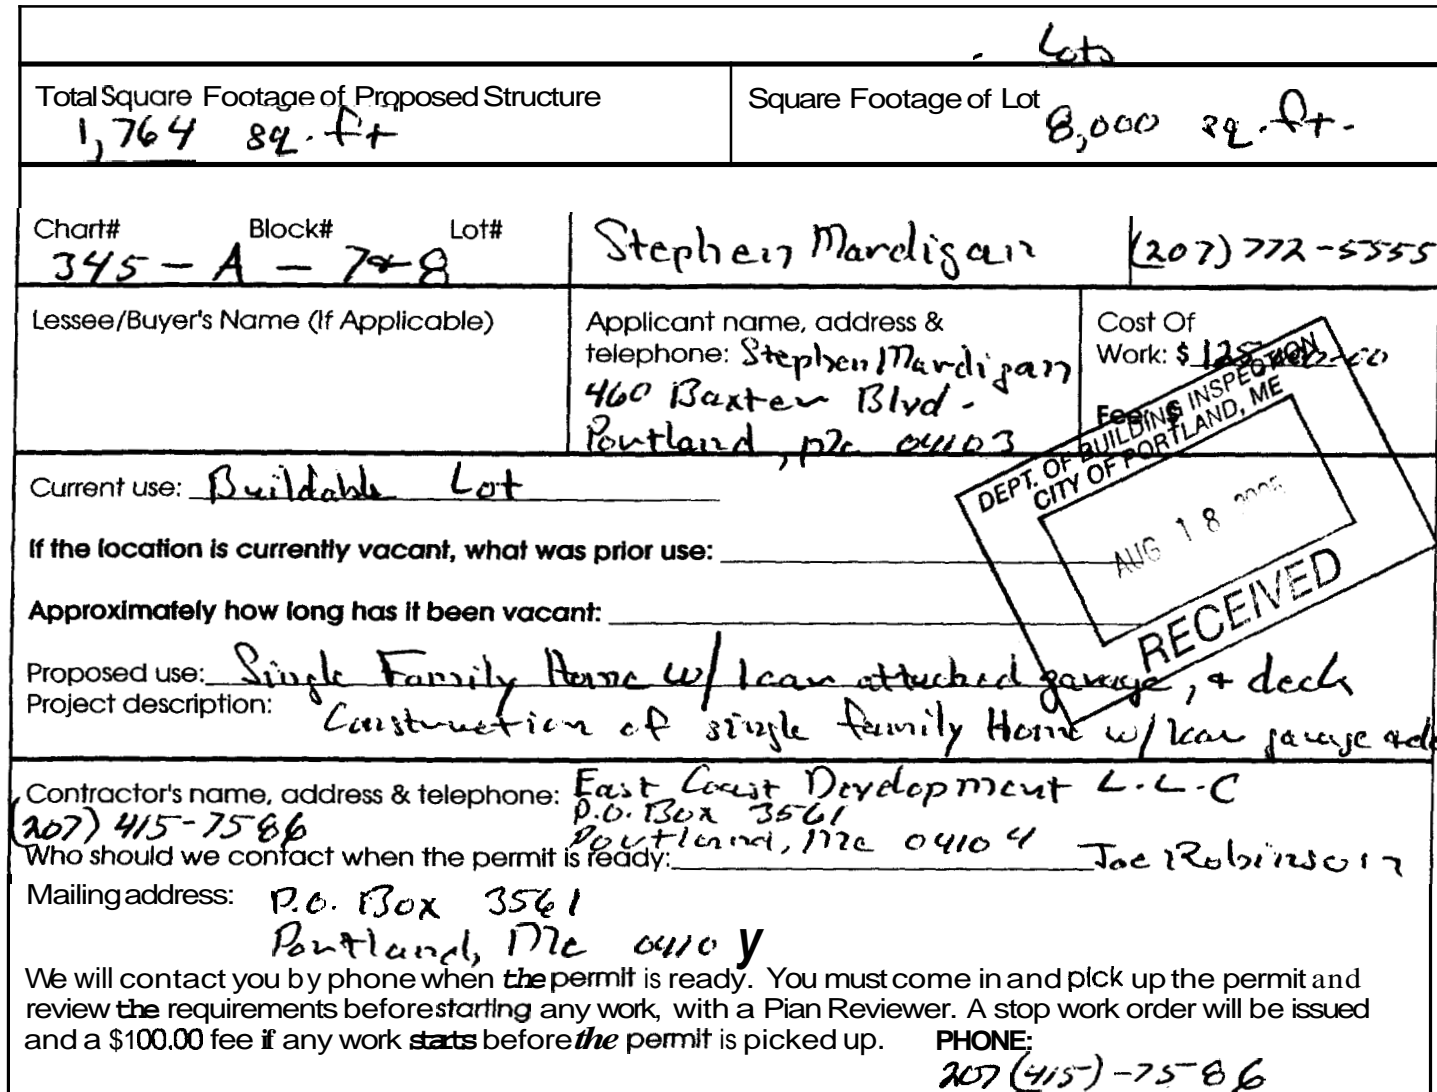 Lots
Total Square Footage of Proposed Structure
1,764 sq. ft
Square Footage of Lot
8,000 sq. ft.
Chart# Block# Lot#
345 - A - 7&8
Stephen Mardigan
(207) 772-5555
Lessee/Buyer's Name (If Applicable)
Applicant name, address &
telephone: Stephen Mardigan
460 Baxter Blvd.
Portland, Me 04103
Cost Of
Work: $ 125,000.00
Fee: $
DEPT. OF BUILDING INSPECTION
CITY OF PORTLAND, ME
AUG 18 2005
RECEIVED
Current use: Buildable Lot
If the location is currently vacant, what was prior use:
Approximately how long has it been vacant:
Proposed use: Single Family Home w/ 1 car attached garage, & deck
Project description: Construction of single family Home w/ 1 car garage & de
Contractor's name, address & telephone: East Coast Development L.L.C
(207) 415-7586 P.O. Box 3561
Portland, Me 04104
Who should we contact when the permit is ready: Joe Robinson
Mailing address: P.O. Box 3561
Portland, Me 0410y
We will contact you by phone when the permit is ready. You must come in and pick up the permit and
review the requirements before starting any work, with a Pian Reviewer. A stop work order will be issued
and a $100.00 fee if any work starts before the permit is picked up. PHONE:
207 (415)-7586